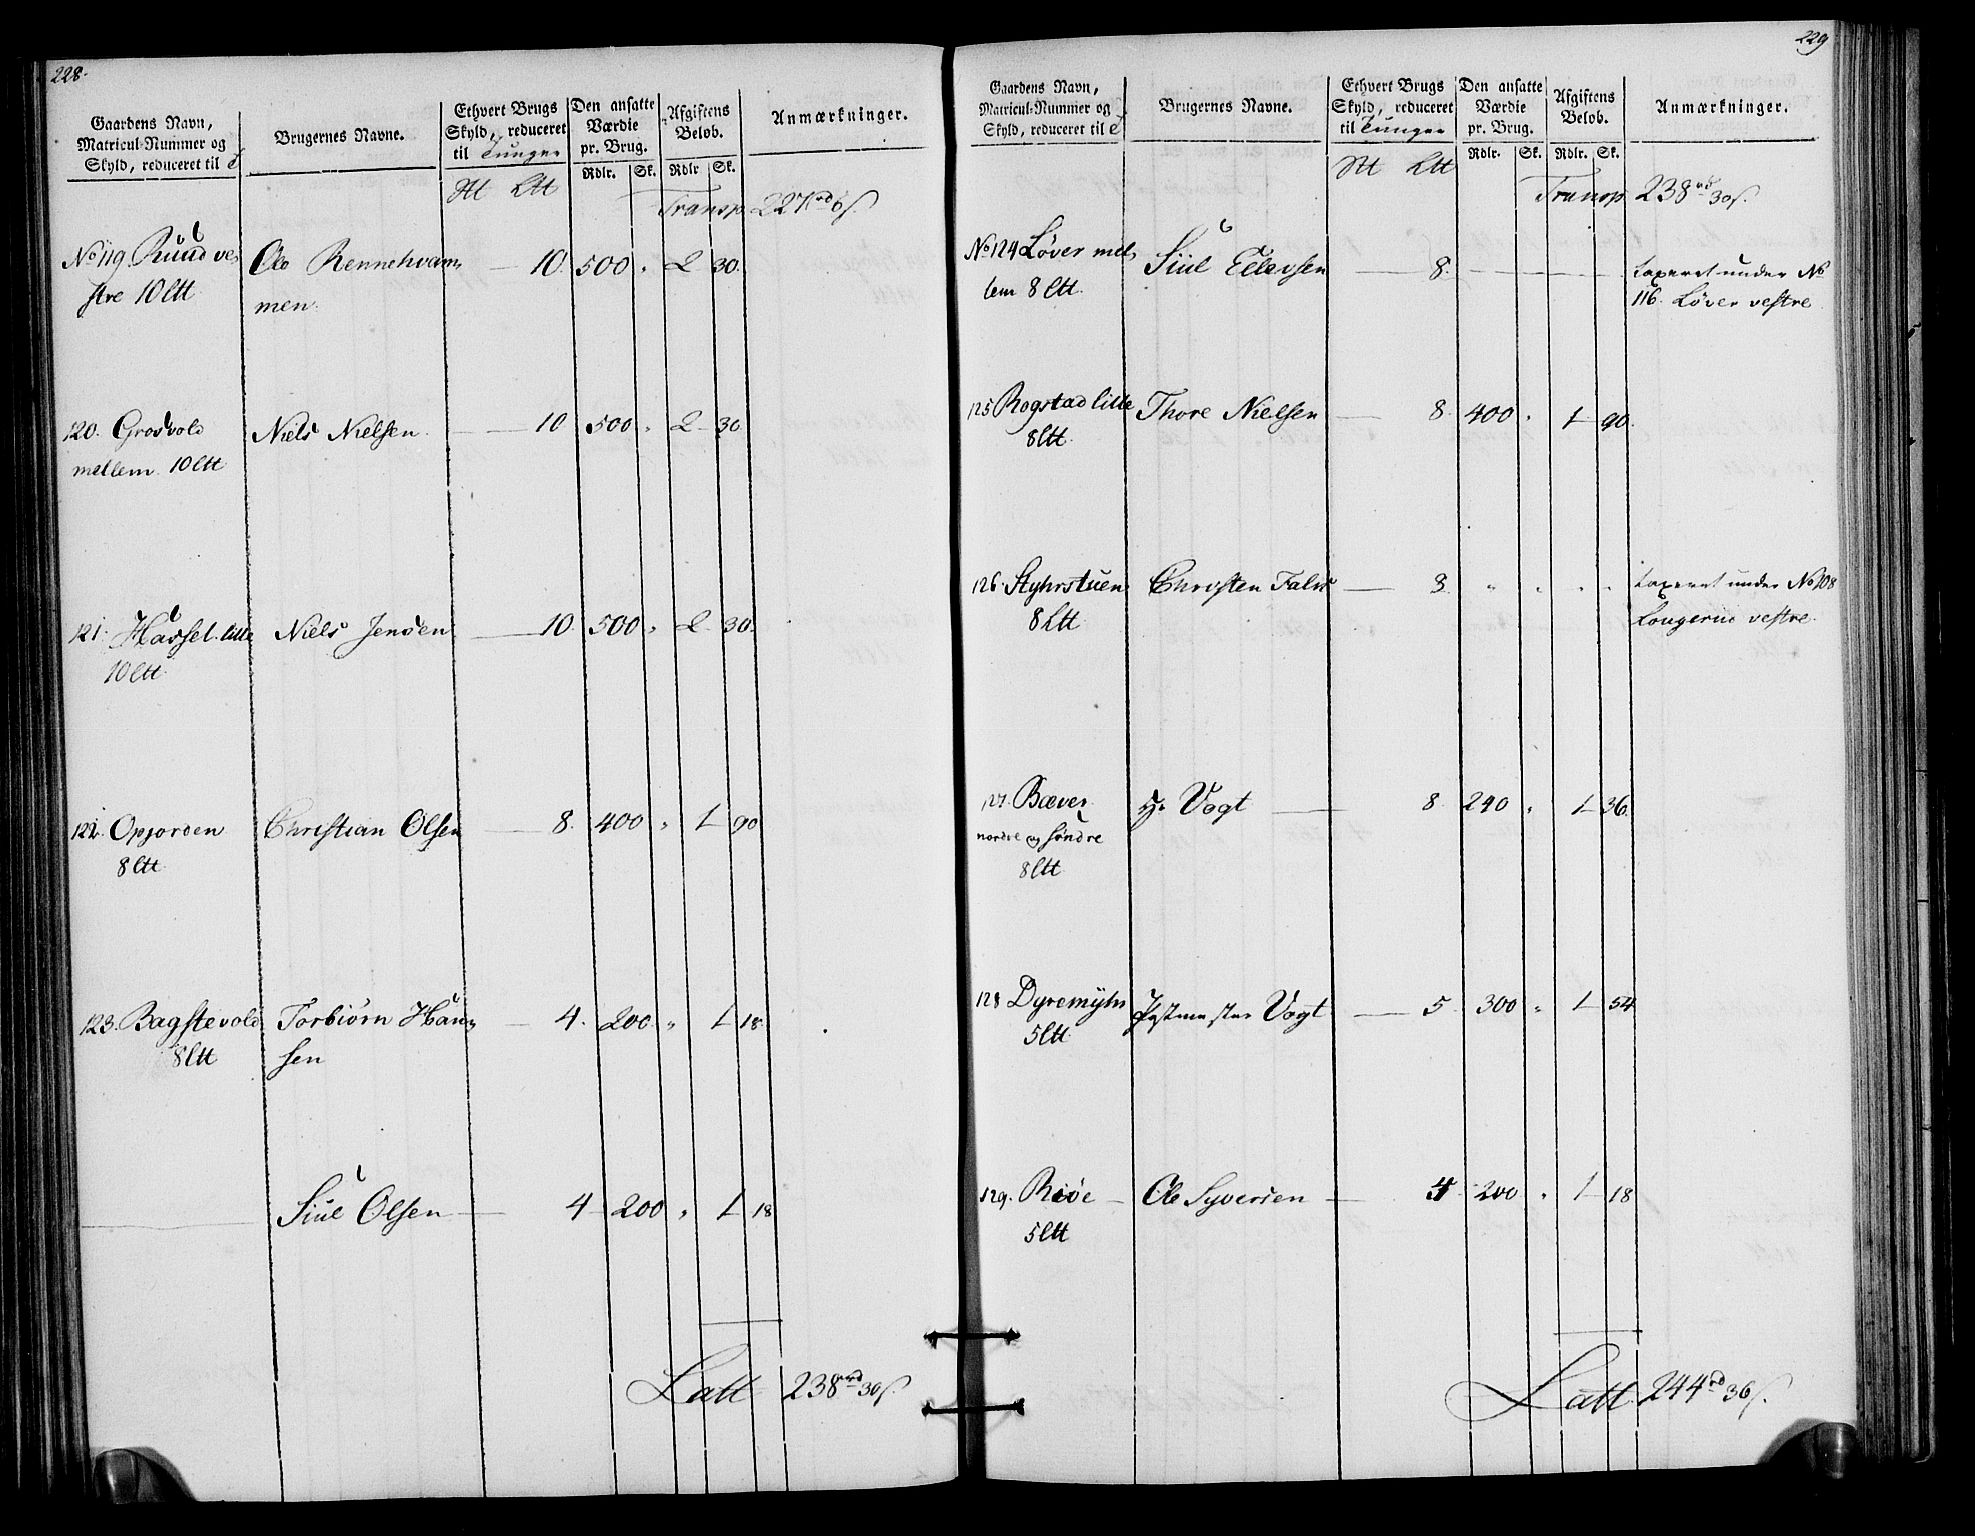 228.
Gaardens Navn,
Matricul-Nummer og
Skyld, reduceret til
Brugernes Navne.
Ethvert Brugs
Skyld, reduceret
til Tunger
Den ansatte
Værdie
pr. Brug.
Afgiftens
Belob.
Anmærkninger.
Rdlr. Sk. Rdlr Sk.
Ltt
Transp 227rd 6s.
No 119 Ruud ve= Ole Rennehvam= — 10. 500 " 2 30.
stre 10 Ltt men.
120. Grosvold Niels Nielsen. — 10 500 " 2 30
mellem. 10 Ltt
121. Hassel lille Niels Jensen — 10. 500 " 2. 30.
10 Ltt
122. Opjorden Christian Olsen — 8. 400 " 1 90
8 Ltt
123. Bagstevold Torbiørn Han= — 4. 200 " 1 18
8 Ltt sen
Siul Olsen — 4 200 " 1 18
Latt 238rd 30s.
229
Gaardens Navn,
Matricul-Nummer og
Skyld, reduceret til
Brugernes Navne.
Ethvert Brugs
Skyld, reduceret
til Tunger
Den ansatte
Værdie
pr. Brug.
Afgiftens
Belob.
Anmærkninger.
Rdlr. Sk. Rdlr. Sk.
Ltt
Transp 238rd 30s.
No 124 Løver mel= Siul Eilevsen — 8. — taxeret under No
lem 8 Ltt. 116. Løver vestre
125 Rogstad lille Thore Nielsen — 8 400 " 1 90.
8 Ltt.
126. Styhrstuen Christen Falk — 8 " " " " taxeret under No 108
8 Ltt vestre.
127. Bæver Hr Vogt — 8 240 " 1 36.
nordre og søndre
8 Ltt
128 Dyremyhr Postmester Vogt — 5 300 " 1 54
5 Ltt
129. Riøe — Ole Syversen — 4 200 " 1 18
5 Ltt
Latt 244rd 36s.